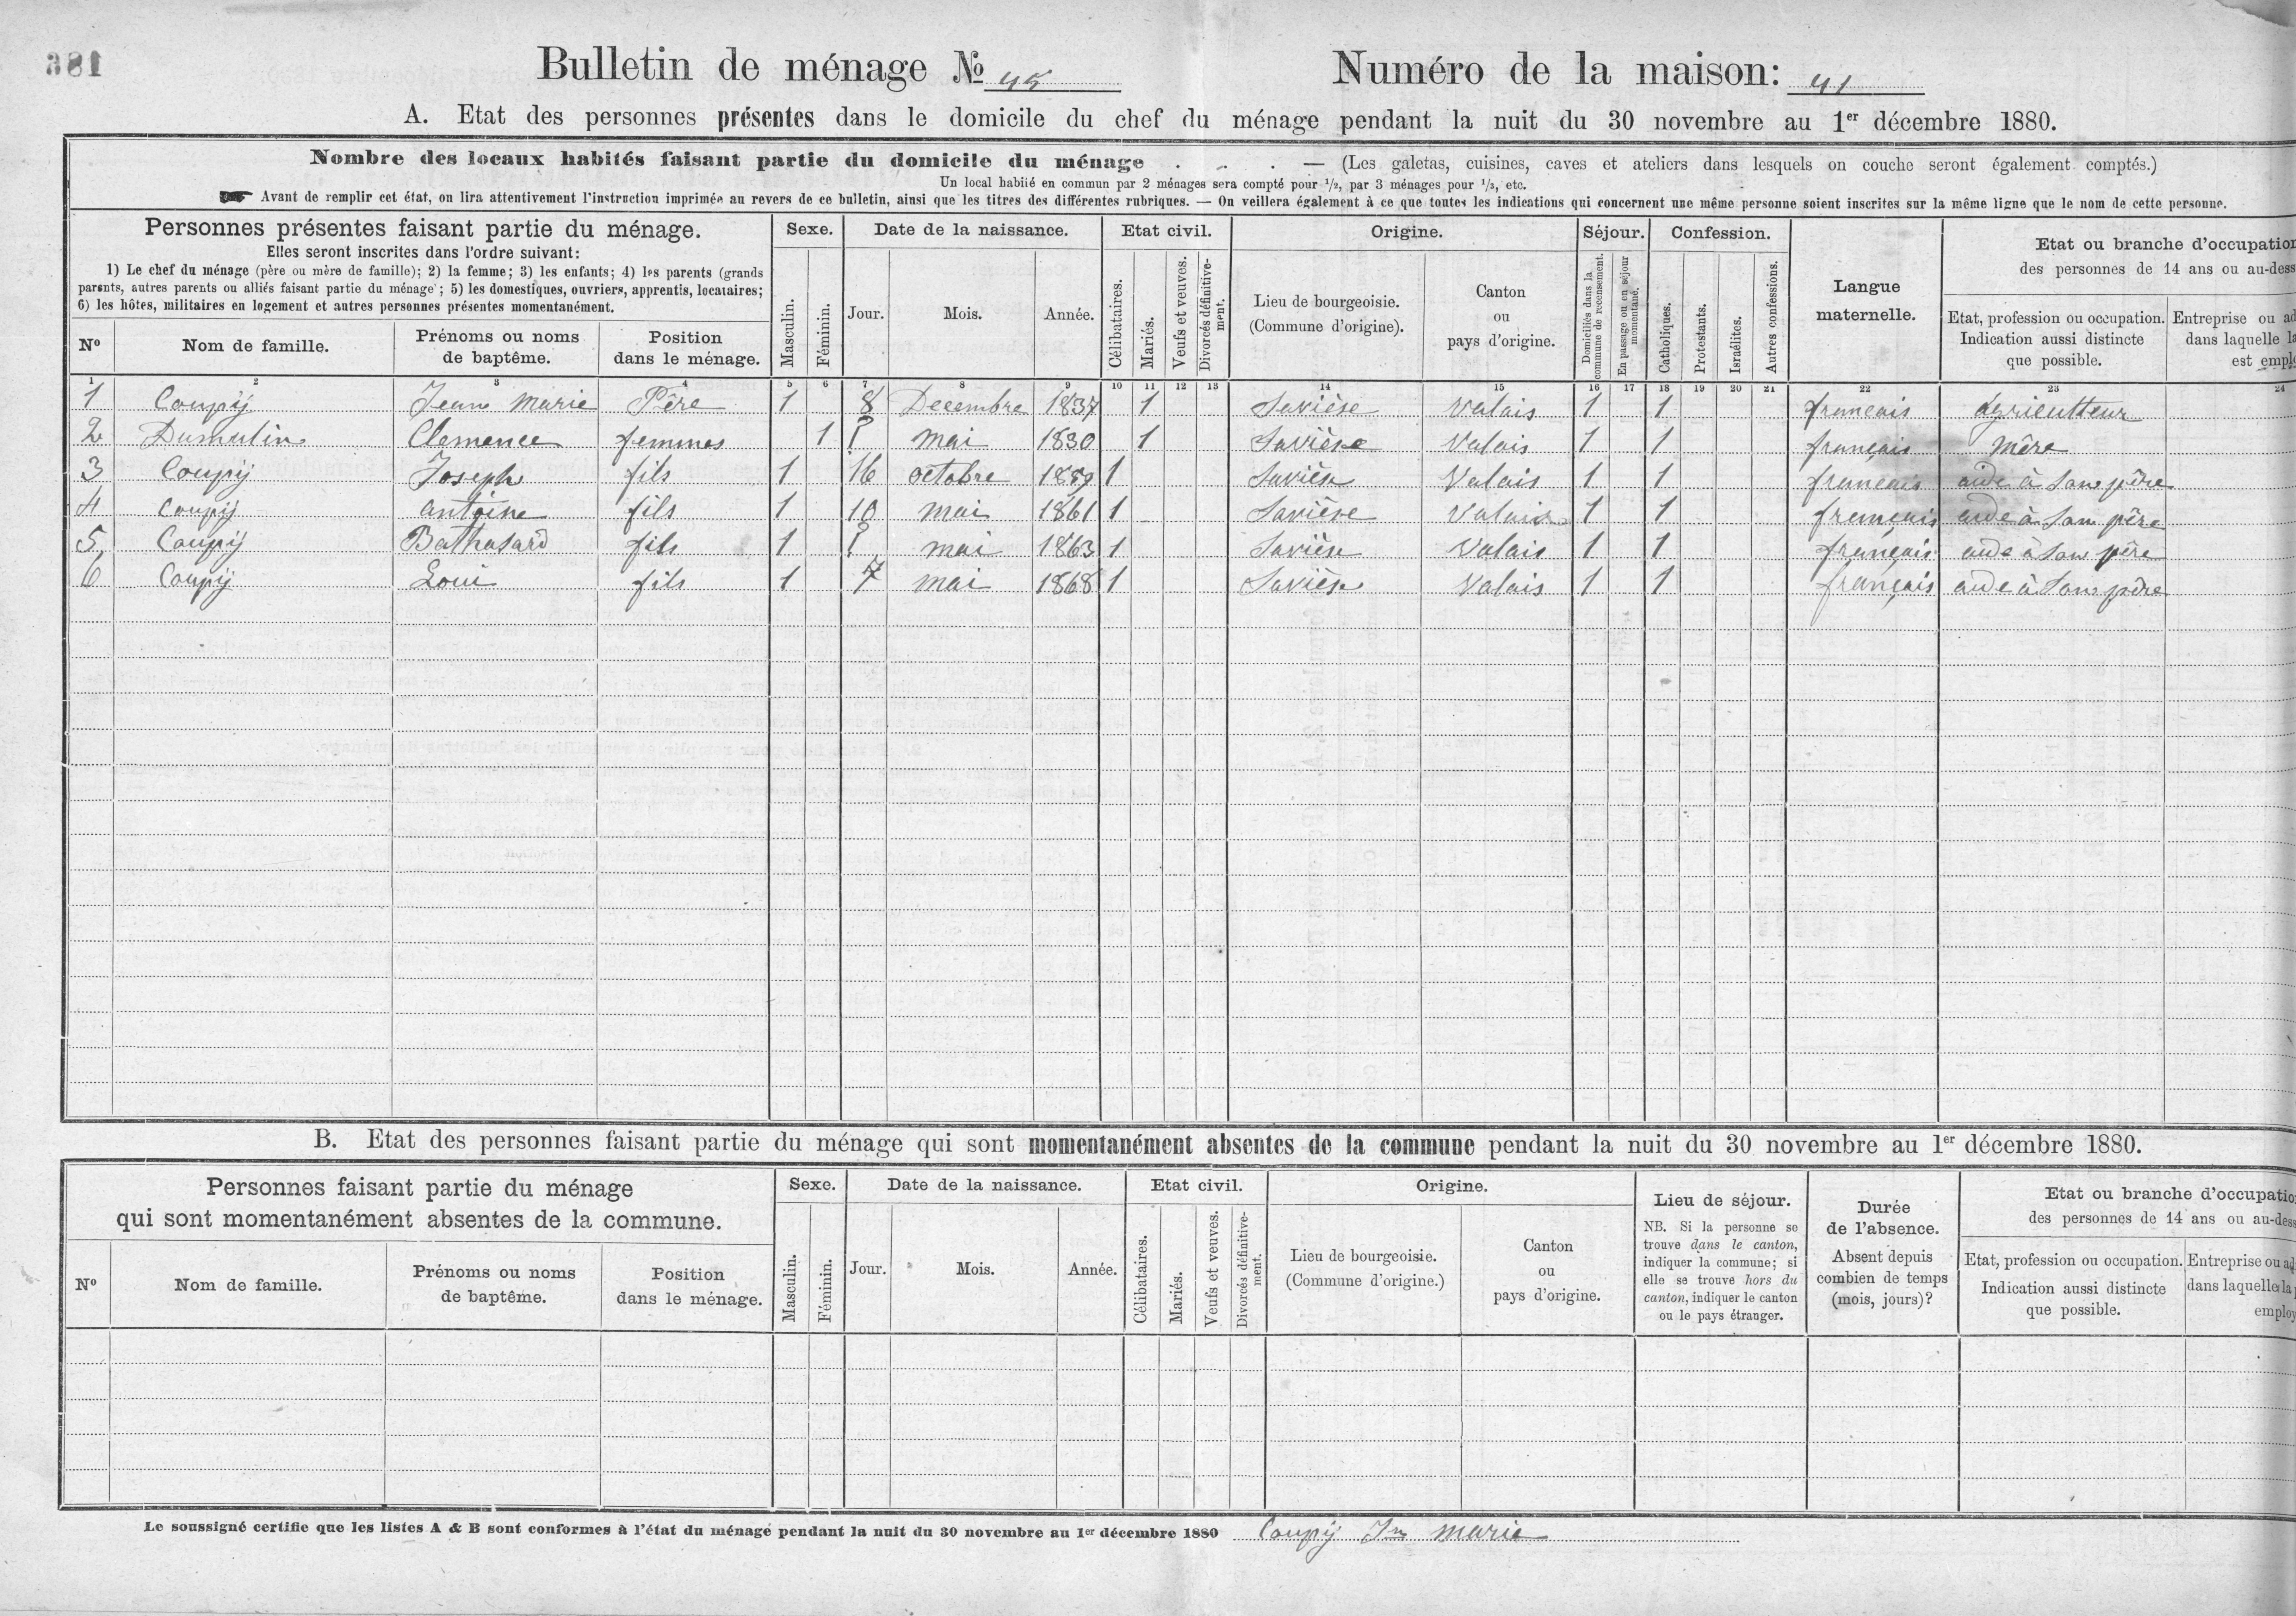 381
Bulletin de ménage № 45 Numéro de la maison: 41
A. Etat des personnes présentes dans le domicile du chef du ménage pendant la nuit du 30 novembre au 1er décembre 1880.
Nombre des locaux habités faisant partie du domicile du ménage . . . — (Les galetas, cuisines, caves et ateliers dans lesquels on couche seront également comptés.)
Un local habité en commun par 2 ménages sera compté pour 1/2, par 3 ménages pour 1/3, etc.
Avant de remplir cet état, on lira attentivement l'instruction imprimée au revers de ce bulletin, ainsi que les titres des différentes rubriques. — On veillera également à ce que toutes les indications qui concernent une même personne soient inscrites sur la même ligne que le nom de cette personne.
Personnes présentes faisant partie du ménage.
Elles seront inscrites dans l'ordre suivant:
1) Le chef du ménage (père ou mère de famille); 2) la femme; 3) les enfants; 4) les parents (grands
parents, autres parents ou alliés faisant partie du ménage; 5) les domestiques, ouvriers, apprentis, locataires;
6) les hôtes, militaires en logement et autres personnes présentes momentanément.
No
Nom de famille.
Prénoms ou noms
de baptême.
Position
dans le ménage.
Sexe.
Masculin.
Féminin.
Date de la naissance.
Jour.
Mois.
Année.
Etat civil.
Célibataires.
Mariés.
Veufs et veuves.
Divorcés définitive-
ment.
Origine.
Lieu de bourgeoisie.
(Commune d'origine).
Canton
ou
pays d'origine.
Séjour.
Domiciliés dans la
commune de recensement.
En passage ou en séjour
momentané.
Confession.
Catholiques.
Protestants.
Israélites.
Autres confessions.
Langue
maternelle.
Etat ou branche d'occupation
des personnes de 14 ans ou au-dess
Etat, profession ou occupation.
Indication aussi distincte
que possible.
Entreprise ou ad
dans laquelle la
est emplo
1 2 3 4 5 6 7 8 9 10 11 12 13 14 15 16 17 18 19 20 21 22 23 24
1 Coupÿ Jean Marie Père 1 8 Decembre 1837 1 Savièse Valais 1 1 français agricultteur
2 Dumulin Clemence femmes 1 ? mai 1830 1 Savièse Valais 1 1 français Mère
3 Coupÿ Joseph fils 1 16 octobre 1 Savièse Valais 1 1 français aide à son père
4 Coupÿ antoine fils 1 10 mai 1861 1 Savièse Valais 1 1 français aide à son père
5 Coupÿ Bathasard fils 1 ? mai 1863 1 Savièse Valais 1 1 français aide à son père
6 Coupÿ Loui fils 1 7 mai 1868 1 Savièse Valais 1 1 français aide à son père
B. Etat des personnes faisant partie du ménage qui sont momentanément absentes de la commune pendant la nuit du 30 novembre au 1er décembre 1880.
Personnes faisant partie du ménage
qui sont momentanément absentes de la commune.
No
Nom de famille.
Prénoms ou noms
de baptême.
Position
dans le ménage.
Sexe.
Masculin.
Féminin.
Date de la naissance.
Jour.
Mois.
Année.
Etat civil.
Célibataires.
Mariés.
Veufs et veuves.
Divorcés définitive-
ment.
Origine.
Lieu de bourgeoisie.
(Commune d'origine.)
Canton
ou
pays d'origine.
Lieu de séjour.
NB. Si la personne se
trouve dans le canton,
indiquer la commune; si
elle se trouve hors du
canton, indiquer le canton
ou le pays étranger.
Durée
de l'absence.
Absent depuis
combien de temps
(mois, jours)?
Etat ou branche d'occupatio
des personnes de 14 ans ou au-dess
Etat, profession ou occupation.
Indication aussi distincte
que possible.
Entreprise ou ad
dans laquelle la
employ
Le soussigné certifie que les listes A & B sont conformes à l'état du ménage pendant la nuit du 30 novembre au 1er décembre 1880 Coupÿ Jn marie